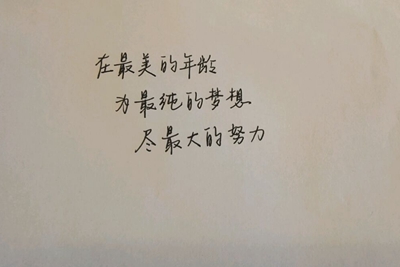 在最美的年龄
为最纯的梦想
尽最大的努力